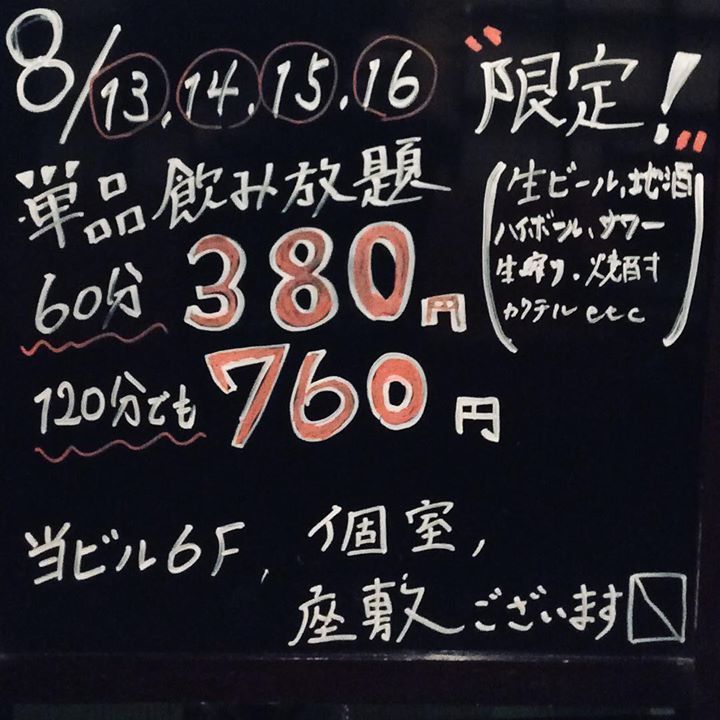 8/13.14.15.16 "限定!"
単品飲み放題
60分 380円
120分でも 760円
(生ビール、地酒
ハイボール、サワー
生搾り・焼酎
カクテル etc)
当ビル6F、個室、
座敷ございます〼